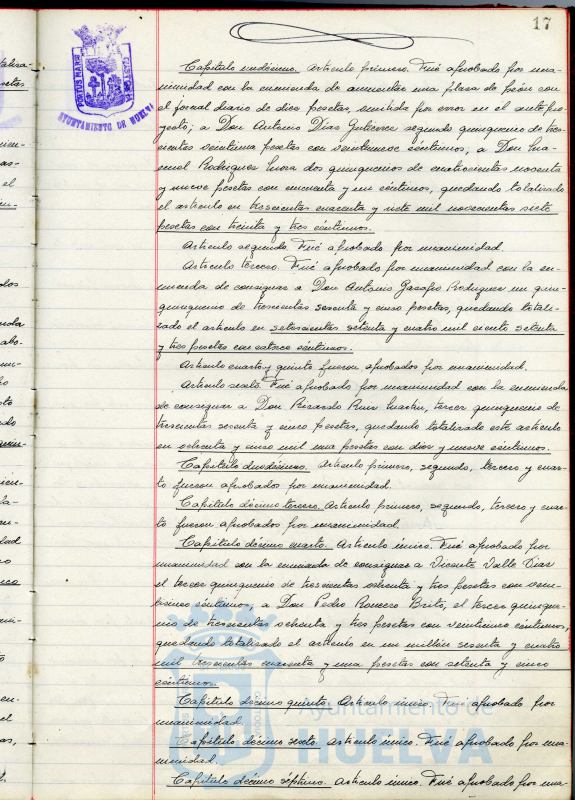 17
PORTUS MARIS ET TERRE CUSTODIA
AYUNTAMIENTO DE HUELVA
Capítulo undécimo. Artículo primero. Fué aprobado por una-
nimidad con la enmienda de aumentar una plaza de Peón con
el jornal diario de diez pesetas, omitida por error en el antepro-
yecto; a Don Antonio Días Gutierrez segundo quinquenio de tres-
cientas veintiuna pesetas con veintinueve céntimos; a Don Ma-
nuel Rodriguez dos quinquenios de cuatrocientas noventa
y nueve pesetas con cincuenta y un céntimos, quedando totalizado
el artículo en trescientas cuarenta y siete mil novecientas siete
pesetas con treinta y tres céntimos.
Artículo segundo. Fué aprobado por unanimidad.
Artículo tercero. Fué aprobado por unanimidad con la en-
mienda de consignar a Don Antonio Garafeo Rodriguez un quin-
quenio de trescientas sesenta y cinco pesetas, quedando totali-
zado el artículo en setecientas setenta y cuatro mil ciento setenta
y tres pesetas con catorce céntimos.
Artículo cuarto y quinto fueron aprobados por unanimidad.
Artículo sexto. Fué aprobado por unanimidad con la enmienda
de consignar a Don Ricardo Ruiz Martin, tercer quinquenio de
trescientas sesenta y cinco pesetas, quedando totalizado este artículo
en ochenta y cinco mil una pesetas con diez y nueve céntimos.
Capítulo duodécimo. Artículo primero, segundo, tercero y cuar-
to fueron aprobados por unanimidad.
Capítulo décimo tercero. Artículo primero, segundo, tercero y cuar-
to fueron aprobados por unanimidad.
Capítulo décimo cuarto. Artículo único. Fué aprobado por
unanimidad con la enmienda de consignar a Vicente Valle Días
el tercer quinquenio de trescientas ochenta y tres pesetas con vein-
ticinco céntimos; a Don Pedro Romero Brito, el tercer quinque-
nio de trescientas ochenta y tres pesetas con veinticinco céntimos,
quedando totalizado el artículo en un millón sesenta y cuatro
mil trescientas cuarenta y una pesetas con setenta y cinco
céntimos.
Capítulo décimo quinto. Artículo único. Fué aprobado por
unanimidad.
Capítulo décimo sexto. Artículo único. Fué aprobado por una-
nimidad.
Capítulo décimo séptimo. Artículo único. Fué aprobado por una-
Ayuntamiento de
HUELVA